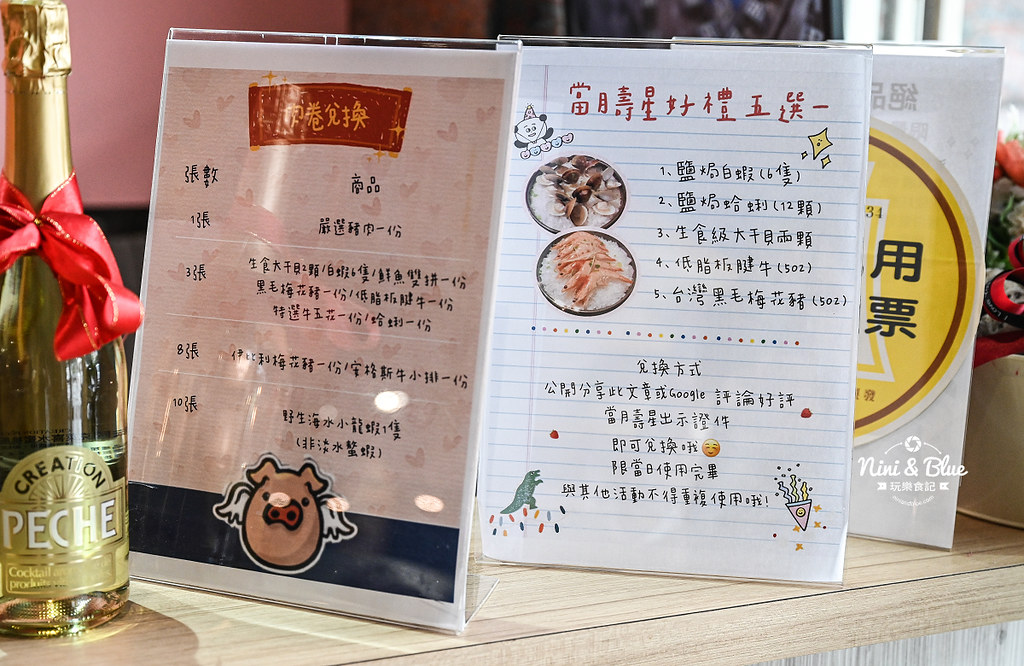 CREATION
PECHE
肉卷兌換
張數 商品
1張 嚴選豬肉一份
3張 生食大干貝2顆/白蝦6隻/鮮魚雙拼一份
黑毛梅花豬一份/低脂板腱牛一份
特選牛五花一份/蛤蜊一份
8張 伊比利梅花豬一份/安格斯牛小排一份
10張 野生海水小龍蝦1隻
(非淡水螯蝦)
當月壽星好禮五選一
1、鹽焗白蝦(6隻)
2、鹽焗蛤蜊(12顆)
3、生食級大干貝兩顆
4、低脂板腱牛(5oz)
5、台灣黑毛梅花豬(5oz)
兌換方式
公開分享此文章或Google 評論好評
當月壽星出示證件
即可兌換哦☺️
限當日使用完畢
與其他活動不得重複使用哦!
用
票
Nini & Blue
玩樂食記